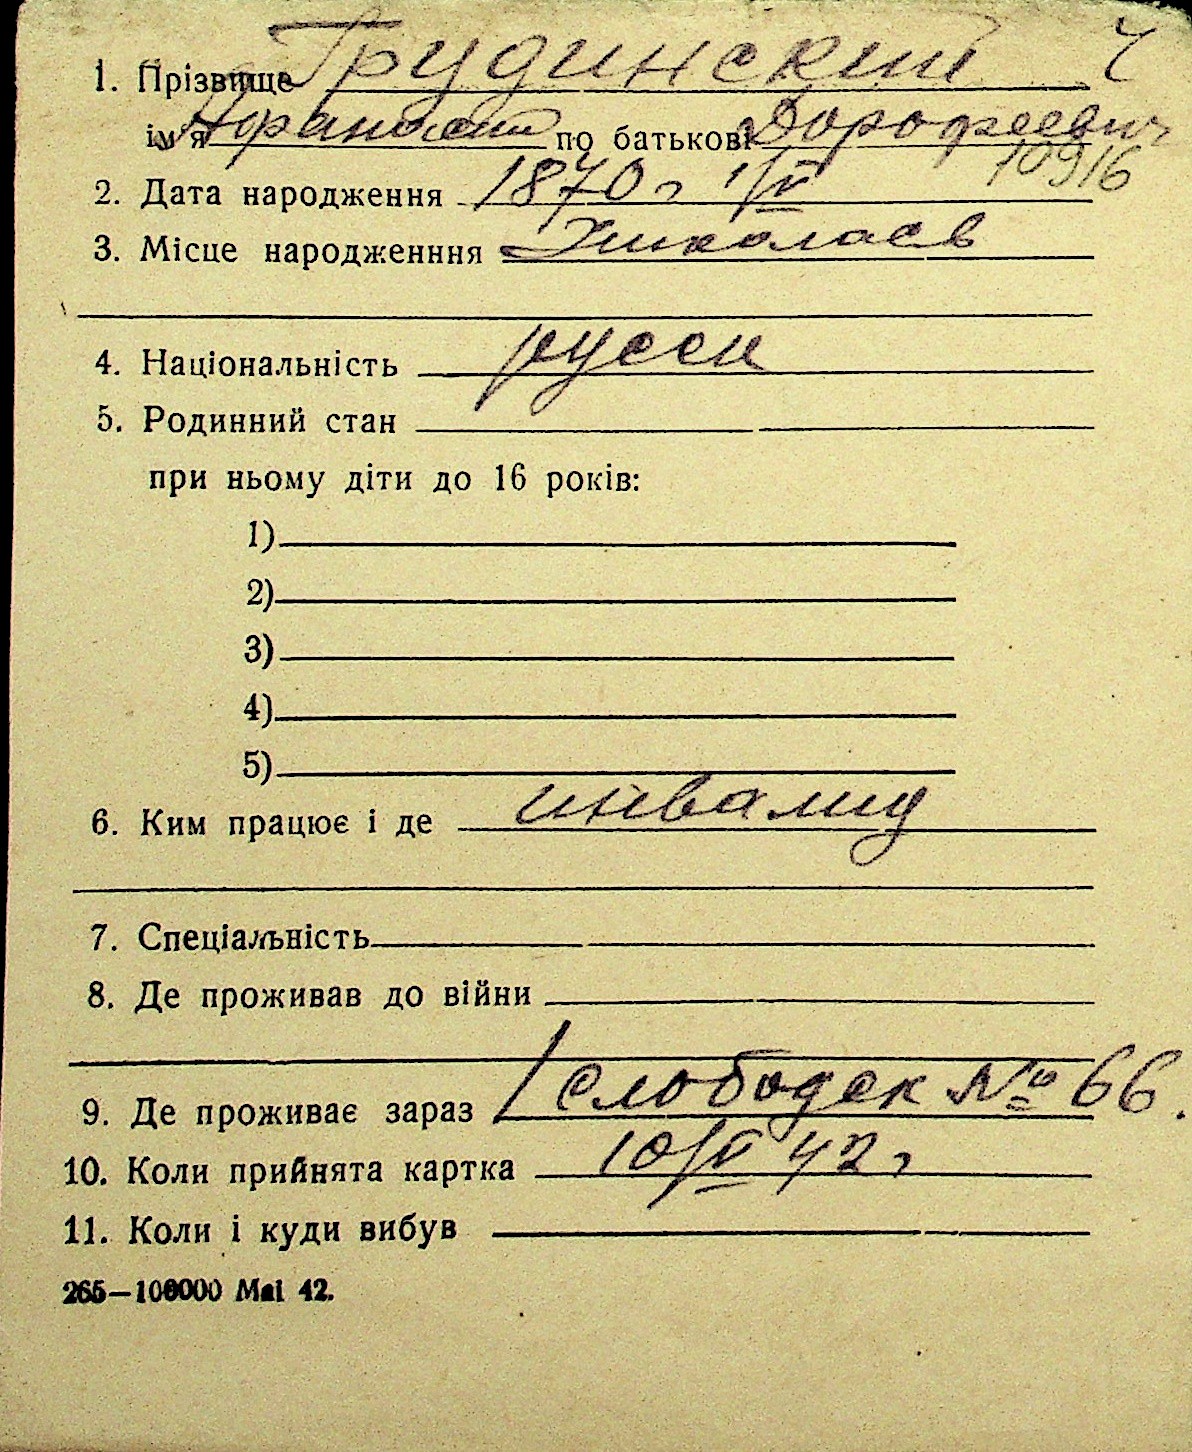 1. Прізвище Грудинский Ч
ім'я Афанасий по батькові Дорофеевич
10916
2. Дата народження 1870 г 1/V
3. Місце народженння Николаев
4. Національність русск
5. Родинний стан
при ньому діти до 16 років:
1)
2)
3)
4)
5)
6. Ким працює і де инвалид
7. Спеціальність
8. Де проживав до війни
9. Де проживає зараз / слободск № 66.
10. Коли прийнята картка 10/VI 42 г
11. Коли і куди вибув
265—100000 Mai 42.